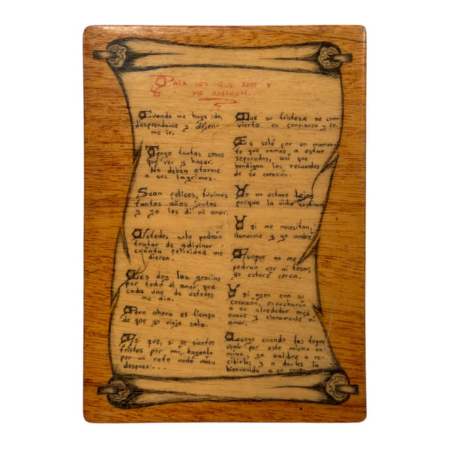 Para los que amé y
me amaron...
Cuando me haya ido,
despréndanse y déjen-
me ir.
Tengo tantas cosas
que ver y hacer.
No deben atarme
a sus lágrimas.
Sean felices, tuvimos
tantos años juntos
y yo les di mi amor.
Ustedes sólo podrán
tratar de adivinar
cuánta felicidad me
dieron.
Les doy las gracias
por todo el amor que
cada uno de ustedes
me dio.
Pero ahora es tiempo
de que yo viaje sola.
Si que, si se sienten
tristes por mi, háganlo
por un rato nada más,
después...
Que su tristeza se con-
vierta en confianza y fe.
Es sólo por un momen-
to que vamos a estar
separados, así que
bendigan los recuerdos
de su corazón.
Yo no estaré lejos
porque la vida continúa
Y si me necesitan,
llámenme y yo vendré.
Aunque no me
podrán ver ni tocar,
yo estaré cerca.
Y si oyen con su
corazón, escucharán
a su alrededor muy
suave y claramente mi
amor.
Luego cuando les toque
venir por este mismo ca-
mino, yo saldré a re-
cibirlos y a darles la
bienvenida a su casa.